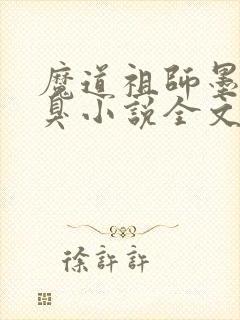 魔道祖師墨
臭小說全文
徐許許